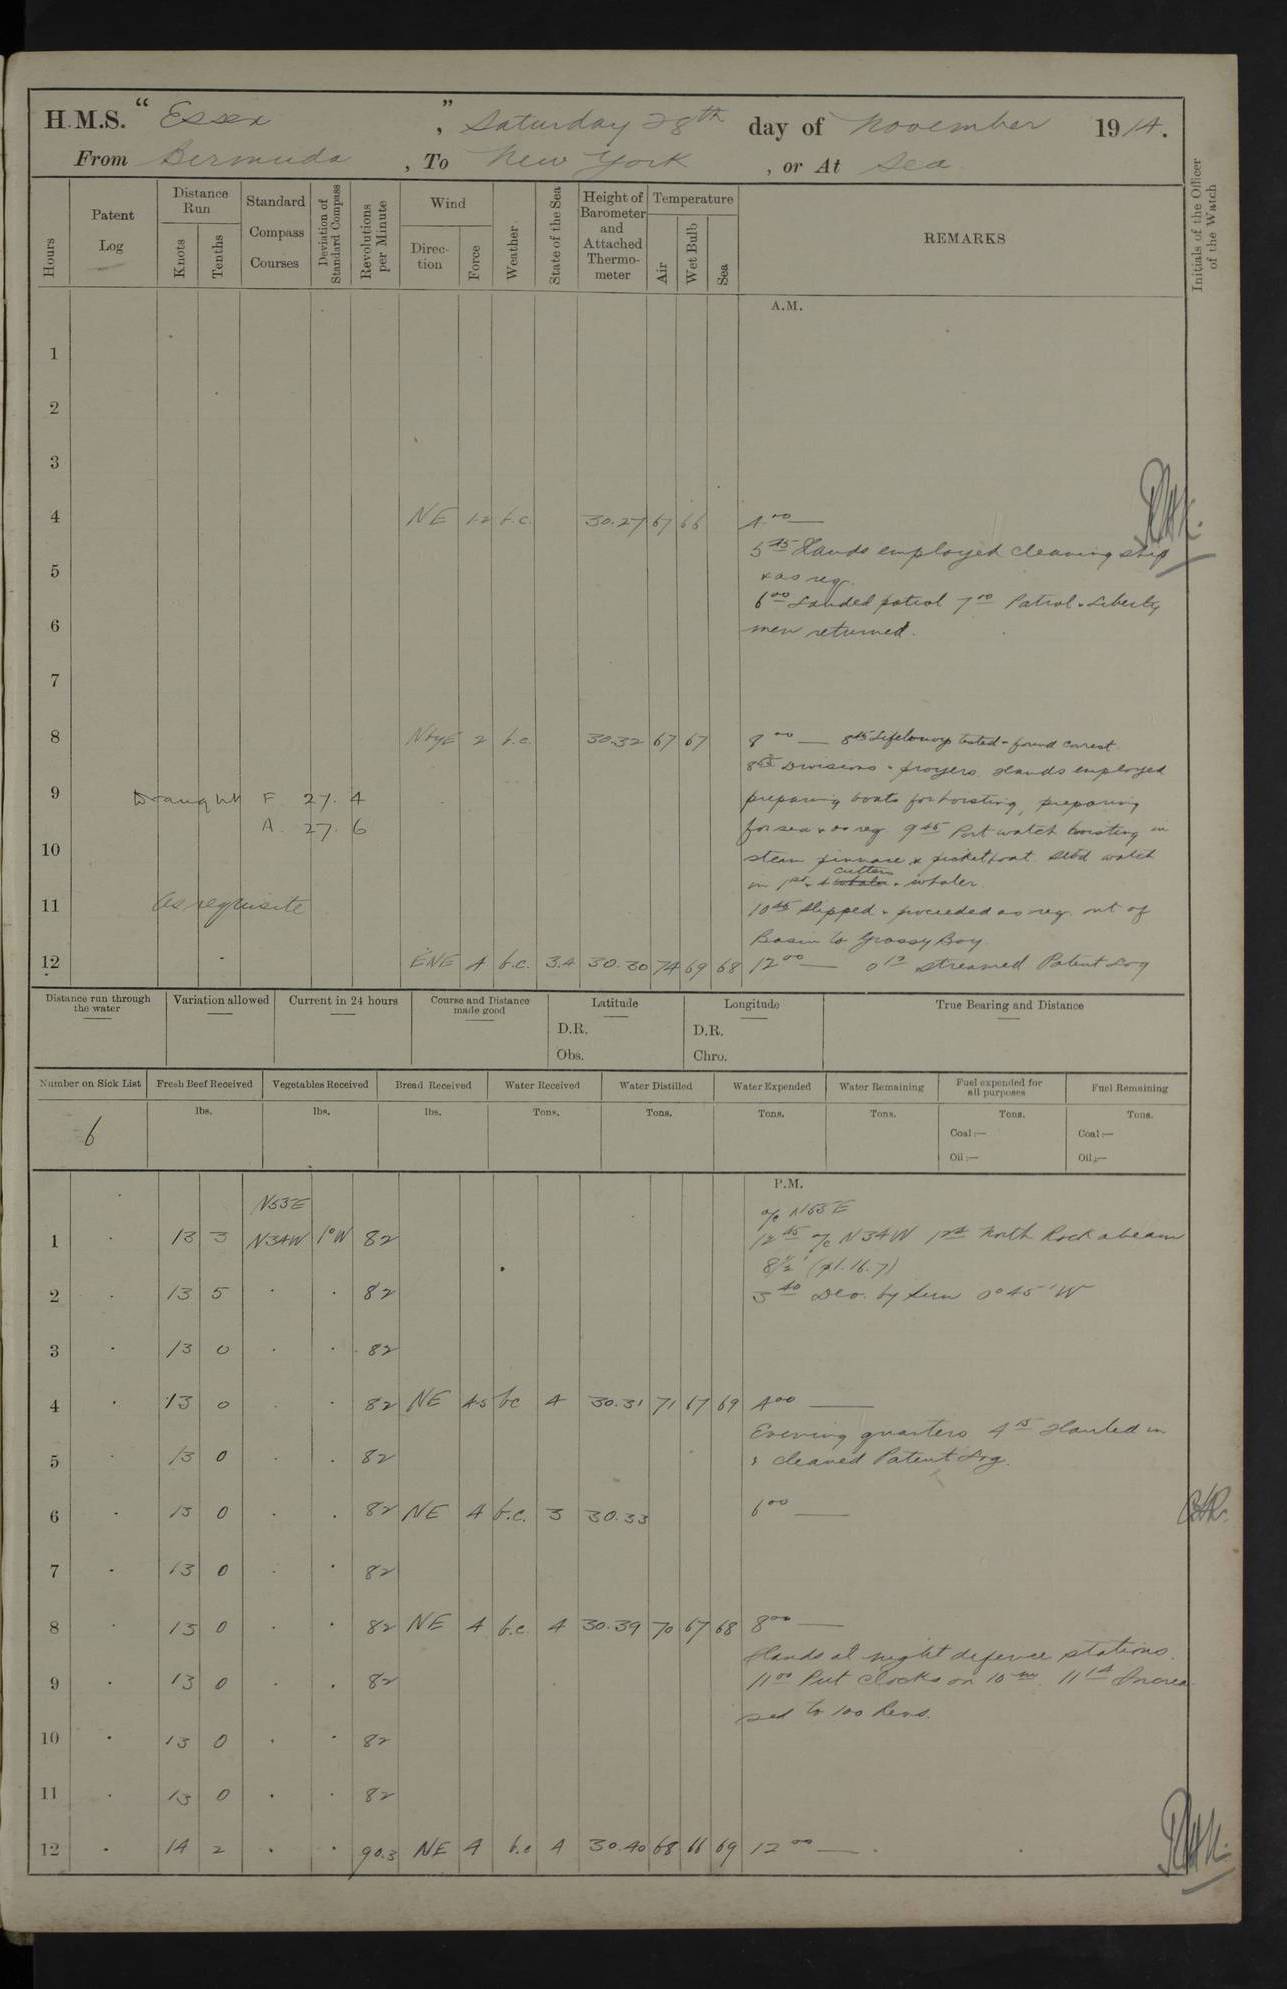 H.M.S. “ Essex ” , Saturday 28th day of November 1914.
From Bermuda , To New York , or At Sea
Hours
Patent Log
Distance Run
Knots
Tenths
Standard Compass Courses
Deviation of Standard Compass
Revolutions per Minute
Wind
Direction
Force
Weather
State of the Sea
Height of Barometer and Attached Thermometer
Temperature
Air
Wet Bulb
Sea
REMARKS
Initials of the Officer of the Watch
A.M.
1
2
3
4 NE 1-2 b.c. 30.27 67 66 4.00 —
5.45 Hands employed cleaning ship
5 & as req.
6.00 Landed patrol 7.00 Patrol & Liberty
6 men returned.
7
8 NbyE 2 b.c. 30.32 67 67 8.00 — 8.45 Lifebuoys tested & found correct.
Divisions & prayers. Hands employed
9 Draught F 27. 4 preparing boats for hoisting, preparing
A. 27. 6 for sea & as req 9.45 Port watch hoisting in
10 steam pinnace & picket boat. Stbd watch
in 1st & cutters & whaler.
11 As requisite 10.45 Slipped & proceeded as req. out of
Basin to Grassy Bay.
12 ENE 4 b.c. 3.4 30.30 74 69 68 12.00 — 0.13 Streamed Patent Log
Distance run through the water
Variation allowed
Current in 24 hours
Course and Distance made good
Latitude
D.R.
Obs.
Longitude
D.R.
Chro.
True Bearing and Distance
Number on Sick List
Fresh Beef Received
Vegetables Received
Bread Received
Water Received
Water Distilled
Water Expended
Water Remaining
Fuel expended for all purposes
Fuel Remaining
6 lbs. lbs. lbs. Tons. Tons. Tons. Tons. Tons. Tons.
Coal :— Coal :—
Oil :— Oil :—
P.M.
N53E a/c N53E
1 13 3 N34W 1°W 82 12.45 a/c N34W North Rock abeam
8½' (pl. 16.7)
2 13 5 82 3.40 Dev. by Sun 0°45'W
3 13 0 82
4 13 0 82 NE 4-5 bc 4 30.31 71 67 69 4.00 —
Evening quarters 4.15 Hauled in
5 13 0 82 & cleaned Patent Log.
6 13 0 82 NE 4 b.c. 3 30.33 6.00 —
7 13 0 82
8 13 0 82 NE 4 b.c. 4 30.39 70 67 68 8.00 —
Hands at night defence stations.
9 13 0 82 11.00 Put Clocks on 10 m. 11.14 Increa-
sed to 100 Revs.
10 13 0 82
11 13 0 82
12 14 2 90.3 NE 4 b.c 4 30.40 68 66 69 12.00 —